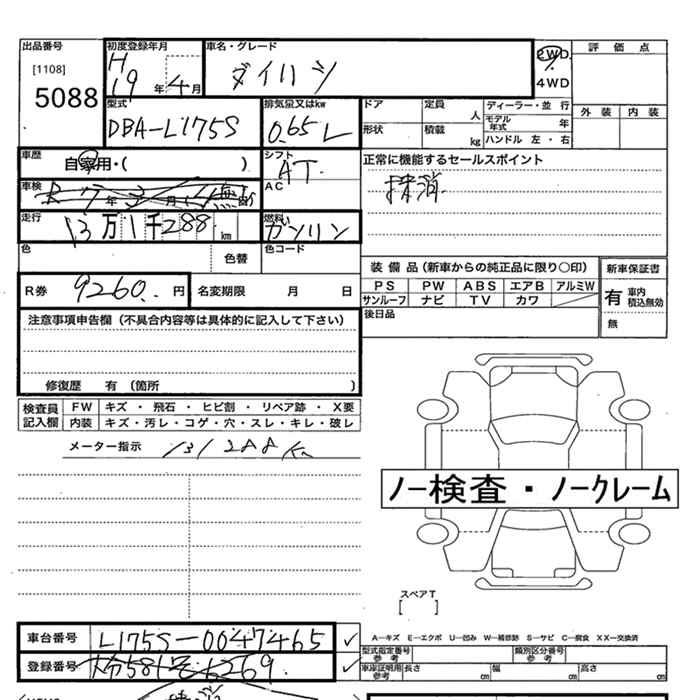 出品番号
[1108]
5088
初度登録年月
H
19年4月
車名・グレード
ダイハツ
2WD
4WD
評価点
外装 内装
型式
DBA-L175S
排気量又はkw
0.65L
ドア 定員 人
形状 積載 kg
ディーラー・並行
モデル年式 年
ハンドル 左・右
車歴
自家用・( )
シフト
AT
AC
正常に機能するセールスポイント
抹消
車検
R7年3月
走行
13万1千288km
燃料
ガソリン
色 色替
色コード
R券 9260.円
名変期限 月 日
装備品(新車からの純正品に限り○印)
PS PW ABS エアB アルミW
サンルーフ ナビ TV カワ
後日品
新車保証書
有 車内積込無効
無
注意事項申告欄(不具合内容等は具体的に記入して下さい)
修復歴 有(箇所 )
検査員記入欄
FW キズ・飛石・ヒビ割・リペア跡・X要
内装 キズ・汚レ・コゲ・穴・スレ・キレ・破レ
メーター指示 131288K
ノー検査・ノークレーム
スペアT
[ ]
車台番号 L175S-0047465 ✓
登録番号 大分581 6269 ✓
A—キズ E—エクボ U—凹み W—補修跡 S—サビ C—腐食 XX—交換済
型式指定番号 参考
類別区分番号 参考
車庫証明用 参考
長さ cm 幅 cm 高さ cm